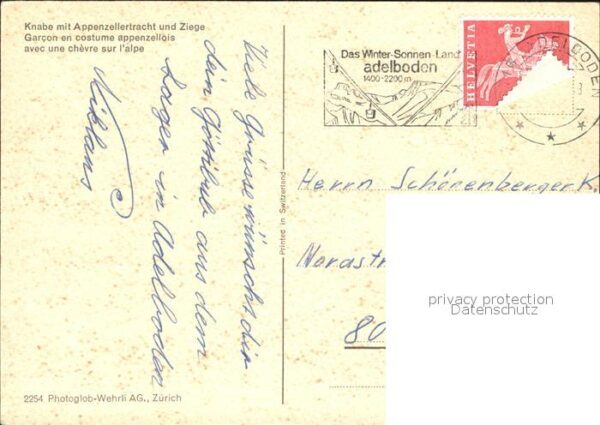 Knabe mit Appenzellertracht und Ziege
Garçon en costume appenzellois
avec une chèvre sur l'alpe
Viele Grüsse wünscht dir
dein Göttibub aus dem
Lager in Adelboden
Niklaus
2254 Photoglob-Wehrli AG., Zürich
Printed in Switzerland
Das Winter-Sonnen-Land
adelboden
1400-2200 m
HELVETIA
ADELBODEN
Herrn Schönenberger K.
Nordstr
80
privacy protection
Datenschutz